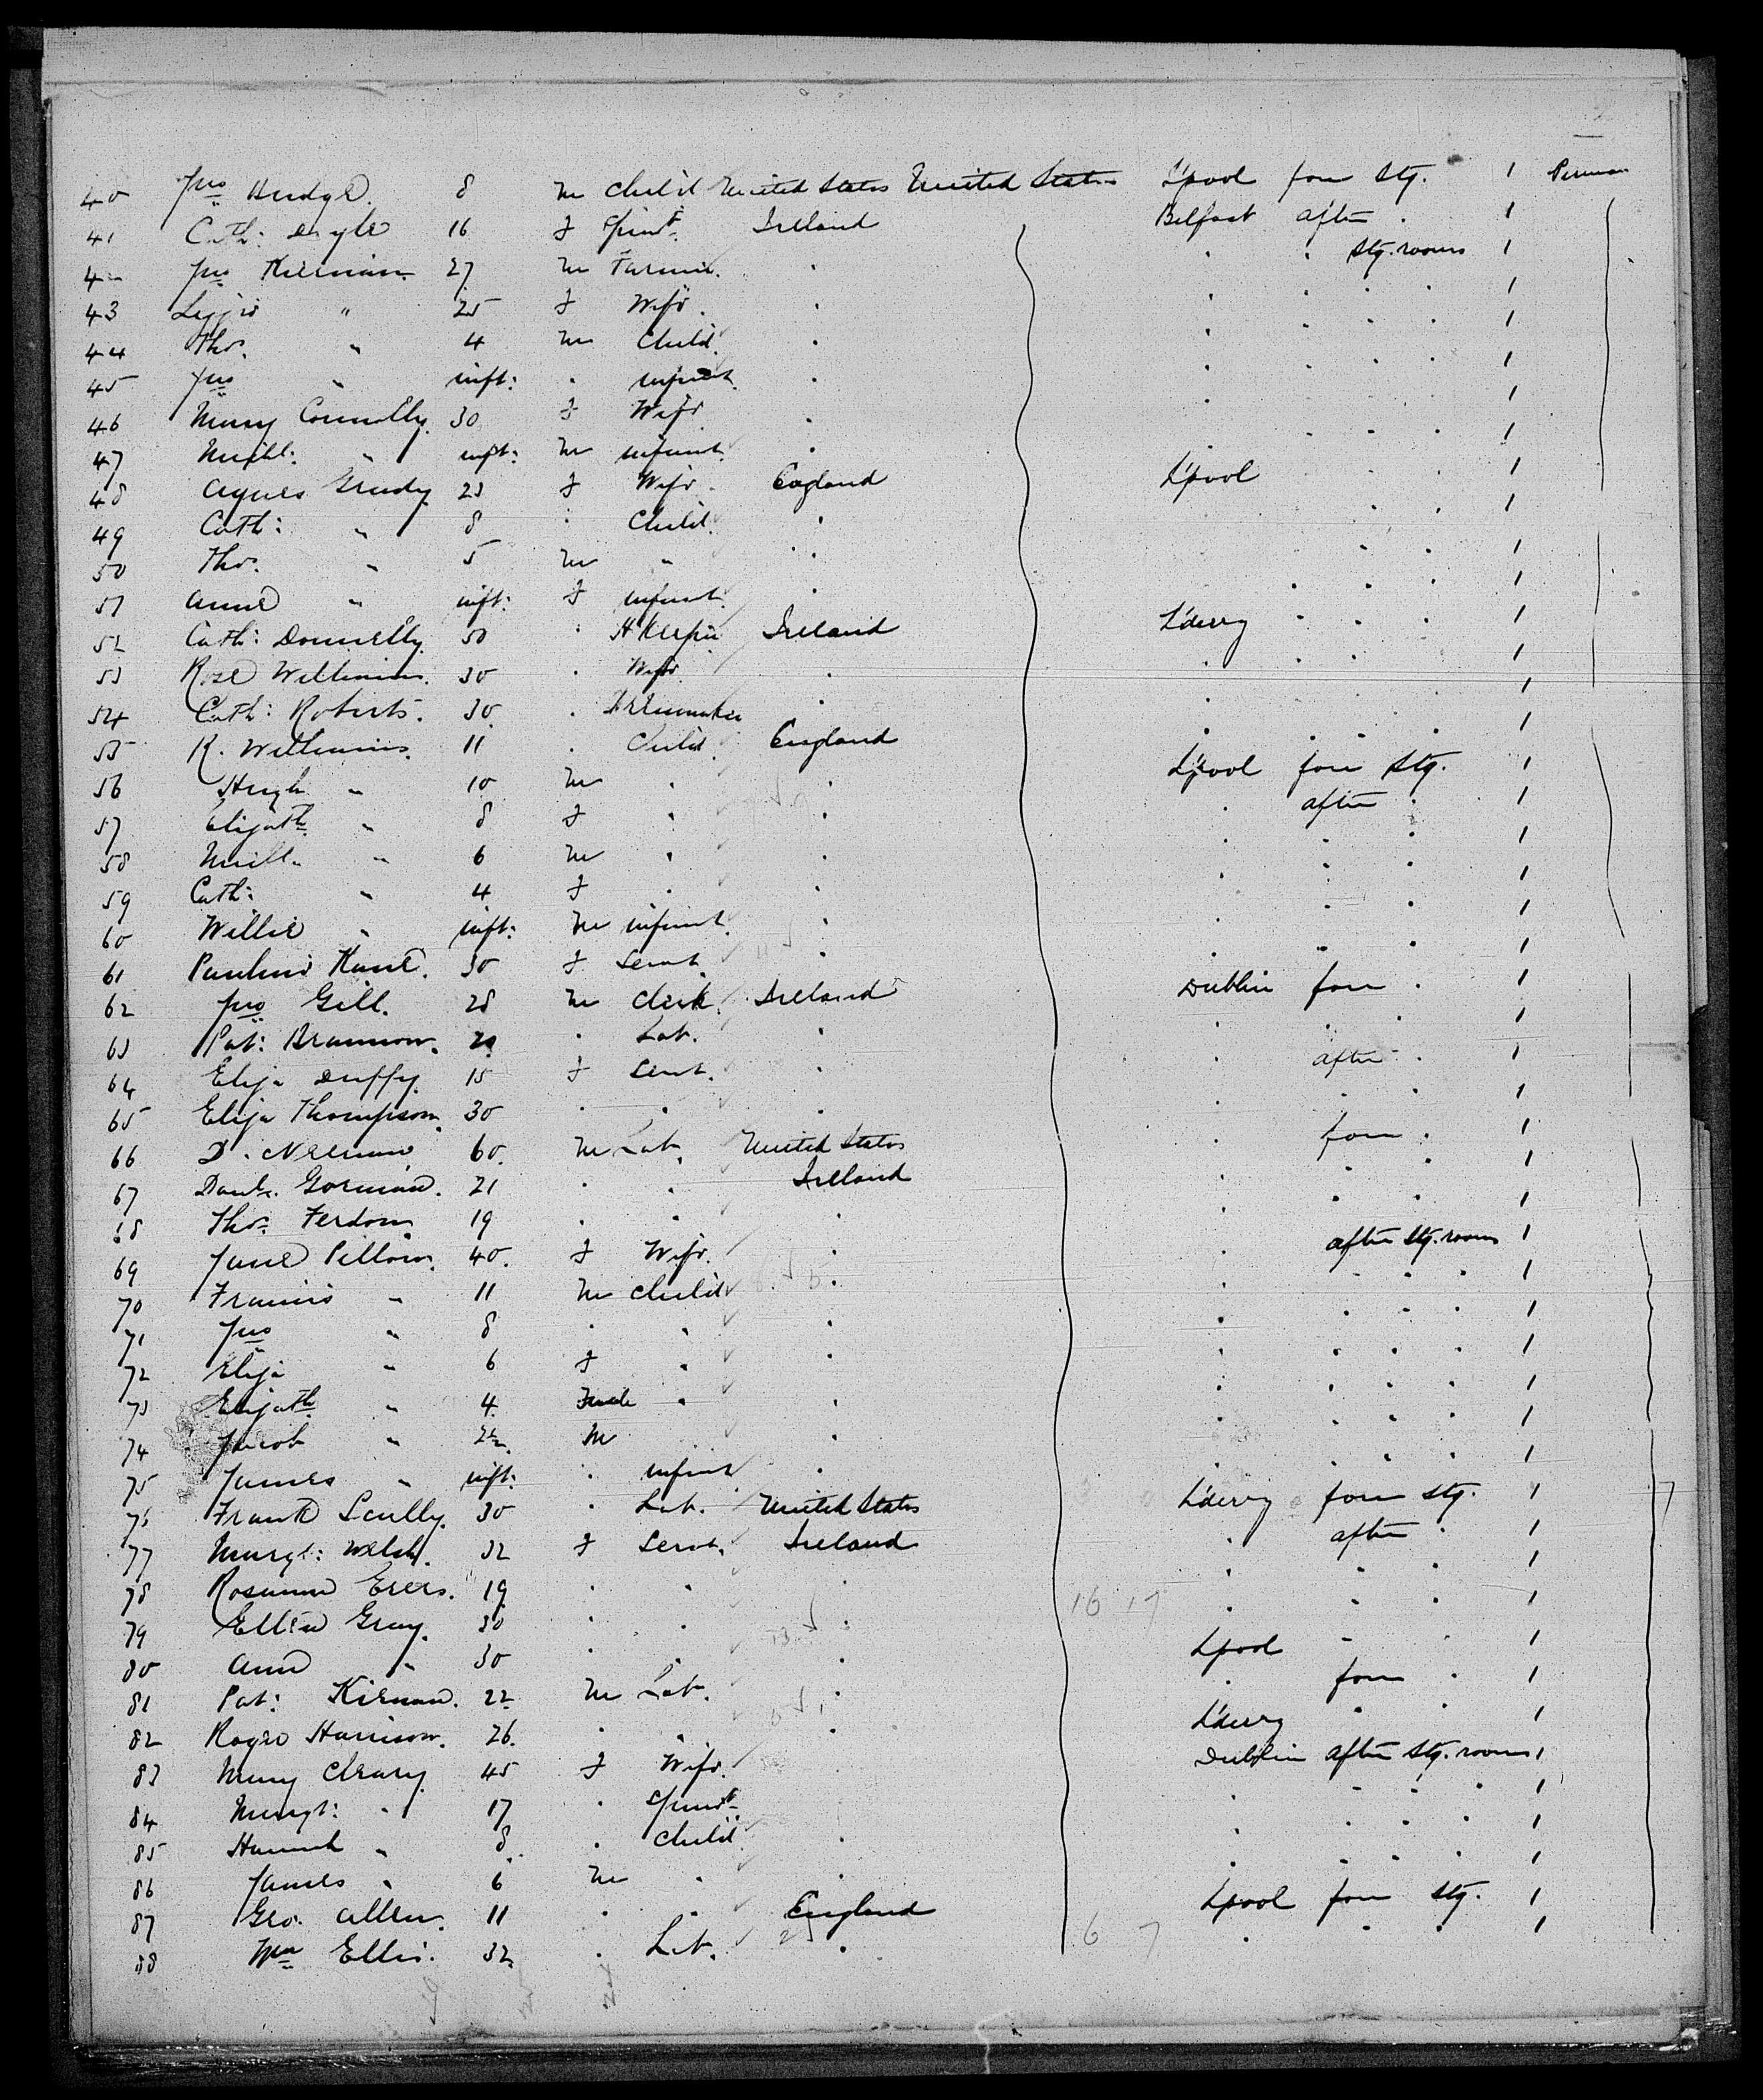 40 Jno Hudge. 8 M Child United States United States L'pool fore Stg. 1
41 Cath: Doyle 16 F Spinr. Ireland Belfast after . 1
42 Jno Kiernan. 27 M Farmer. . . . Stg. rooms 1
43 Lizzie " 25 F Wife . . . . . 1
44 Thos. " 4 M Child. . . . . . 1
45 Jno " inft: . infant. . . . . . 1
46 Mary Connolly. 30 F Wife . . . . . 1
47 Michl: " inft: M infant. . . . . . 1
48 Agnes Grady 23 F Wife . England L'pool . . . 1
49 Cath: " 8 . Child. . . . 1
50 Thos. " 5 M " . . . 1
51 Anne " inft: F infant. . . . . 1
52 Cath: Donnelly. 50 . H Keeper Ireland L'derry . . . 1
53 Rose Williams. 30 . Wife . . . . 1
54 Cath: Roberts. 30. . Dressmaker . . . . 1
55 R. Williams. 11 . Child. England . . . . 1
56 Hugh " 10 M . . L'pool fore Stg. 1
57 Elizath. " 8 F . . . after . 1
58 " 6 M . . . . . 1
59 Cath: " 4 F . . . . . 1
60 Willie " inft: M infant. . . . . 1
61 Pauline Kane. 30 F Servt. . . . . 1
62 Jno Gill. 28 M Clerk. Ireland Dublin fore . 1
63 Pat: Brannon. . Lab. . . . . 1
64 Eliza Duffy. 15 F Servt. . . after . 1
65 Eliza Thompson. 30 . . . . . . 1
66 D. 60. M Lab. United States . fore . 1
67 Danl. Gorman. 21 . . Ireland . . . 1
68 Thos. Ferdom 19 . . . . . . 1
69 Jane Pillow. 40. F Wife. . . after Stg. rooms 1
70 Francis " 11 M Child . . . . . 1
71 Jno " 8 . . . . . . . 1
72 Eliza " 6 F . . . . . . 1
73 Elizath. " 4. Female . . . . . . 1
74 Jacob " M . . . . . 1
75 James " inft: . infant . . . . . 1
76 Frank Scully. 30 . Lab. United States L'derry fore Stg. 1
77 Margt: Welsh. 32 F Servt. Ireland . after . 1
78 Rosanna 19 . . . . . . 1
79 Ellen Gray. 30 . . . 16 17 . . . 1
80 Ann " 30 . . . Lpool . . 1
81 Pat: Kiernan. 22 M Lab. . . fore . 1
82 Roger Harrison. 26. . . . L'derry . . 1
83 Mary Cleary. 45 F Wife. . Dublin after Stg. rooms 1
84 Margt: " 17 . Spinr. . . . . . 1
85 Hannah " 8 . Child . . . . . 1
86 James " 6 M . . . . . . 1
87 Geo. Allen. 11 . . England Lpool fore Stg. 1
88 Wm Ellis. 32 . Lab. . 6 7 . . . 1